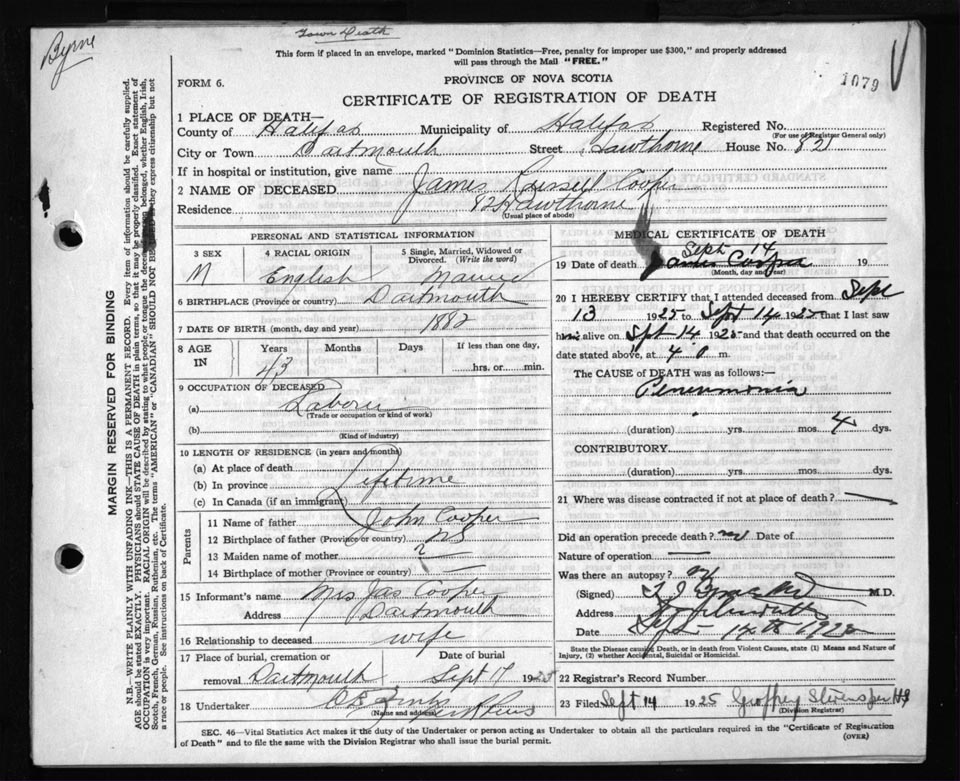 Byrne
Town Death
This form if placed in an envelope, marked "Dominion Statistics—Free, penalty for improper use $300," and properly addressed
will pass through the Mail "FREE."
1079
FORM 6.
PROVINCE OF NOVA SCOTIA
CERTIFICATE OF REGISTRATION OF DEATH
MARGIN RESERVED FOR BINDING
N.B.—WRITE PLAINLY WITH UNFADING INK—THIS IS A PERMANENT RECORD. Every item of information should be carefully supplied.
AGE should be stated EXACTLY. PHYSICIANS should STATE CAUSE OF DEATH in plain terms, so that it may be properly classified. Exact statement of
OCCUPATION is very important. RACIAL ORIGIN will be described by stating to what people or tongue the deceased person belonged, whether English, Irish,
Scotch, French, German, Russian, Ruthenian, etc. The terms "AMERICAN" or "CANADIAN" SHOULD NOT BE USED as they express citizenship but not
a race or people. See instructions on back of Certificate.
1 PLACE OF DEATH—
County of Halifax Municipality of Halifax Registered No.
(For use of Registrar General only)
City or Town Dartmouth Street Hawthorne House No. 82
If in hospital or institution, give name
2 NAME OF DECEASED James Russell Cooper
Residence 82 Hawthorne
(Usual place of abode)
PERSONAL AND STATISTICAL INFORMATION
3 SEX 4 RACIAL ORIGIN 5 Single, Married, Widowed or
Divorced. (Write the word)
M English Married
6 BIRTHPLACE (Province or country) Dartmouth
7 DATE OF BIRTH (month, day and year) 1882
8 AGE IN Years Months Days If less than one day,
43 hrs. or min.
9 OCCUPATION OF DECEASED
(a) Laborer
(Trade or occupation or kind of work)
(b)
(Kind of industry)
10 LENGTH OF RESIDENCE (in years and months)
(a) At place of death
(b) In province Lifetime
(c) In Canada (if an immigrant)
Parents
11 Name of father John Cooper
12 Birthplace of father (Province or country) NS
13 Maiden name of mother ?
14 Birthplace of mother (Province or country)
15 Informant's name Mrs Jas Cooper
Address Dartmouth
16 Relationship to deceased wife
17 Place of burial, cremation or Date of burial
removal Dartmouth Sept 17 1925
18 Undertaker
(Name and address)
MEDICAL CERTIFICATE OF DEATH
Sept 14
19 Date of death James Cooper 19
(Month, day and year)
20 I HEREBY CERTIFY that I attended deceased from Sept
13 1925 to Sept 14 1925 that I last saw
him alive on Spt 14 1925 and that death occurred on the
date stated above, at 4.0 m.
The CAUSE of DEATH was as follows:—
Pneumonia
(duration) yrs. mos. 4 dys.
CONTRIBUTORY.
(duration) yrs. mos. dys.
21 Where was disease contracted if not at place of death?
Did an operation precede death? no Date of
Nature of operation
Was there an autopsy? no
(Signed) M.D.
Address
Date Sept 14th 192
State the Disease causing Death, or in death from Violent Causes, state (1) Means and Nature of
Injury, (2) whether Accidental, Suicidal or Homicidal.
22 Registrar's Record Number
23 Filed Sept 14 1925 Geoffrey
(Division Registrar)
SEC. 46—Vital Statistics Act makes it the duty of the Undertaker or person acting as Undertaker to obtain all the particulars required in the "Certificate of Registration
of Death" and to file the same with the Division Registrar who shall issue the burial permit.
(OVER)